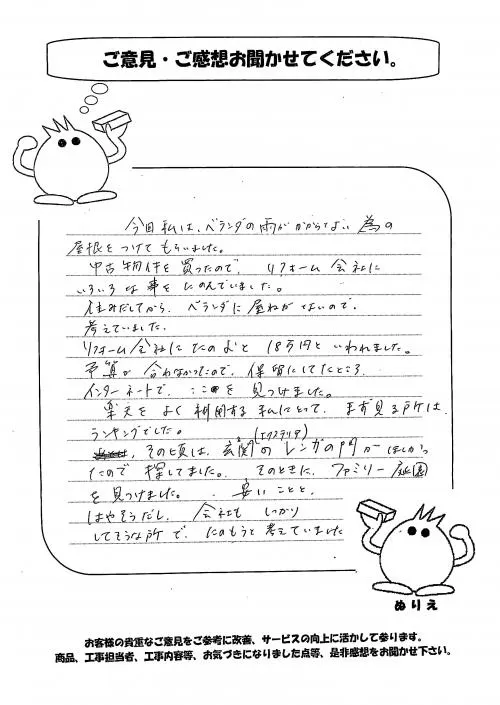 ご意見・ご感想お聞かせてください。
今回私は、ベランダの雨がかからない為の
屋根をつけてもらいました。
中古物件を買ったので、リフォーム会社に
いろいろな事をたのんでいました。
住みだしてから、ベランダに屋ねがないので、
考えていました。
リフォーム会社にたのむと18万円といわれました。
予算が合わなかったので、保留にしてたところ
インターネートで、ここを見つけました。
楽天をよく利用する私にとって、まず見る所は
ランキングでした。
(エクステリア)
その頃は、玄関のレンガの門がほしかっ
たので探してました。そのときに、ファミリー庭園
を見つけました。安いことと、
はやそうだし、会社もしっかり
してそうな所で、たのもうと考えていました
ぬりえ
お客様の貴重なご意見をご参考に改善、サービスの向上に活かして参ります。
商品、工事担当者、工事内容等、お気づきになりました点等、是非感想をお聞かせ下さい。